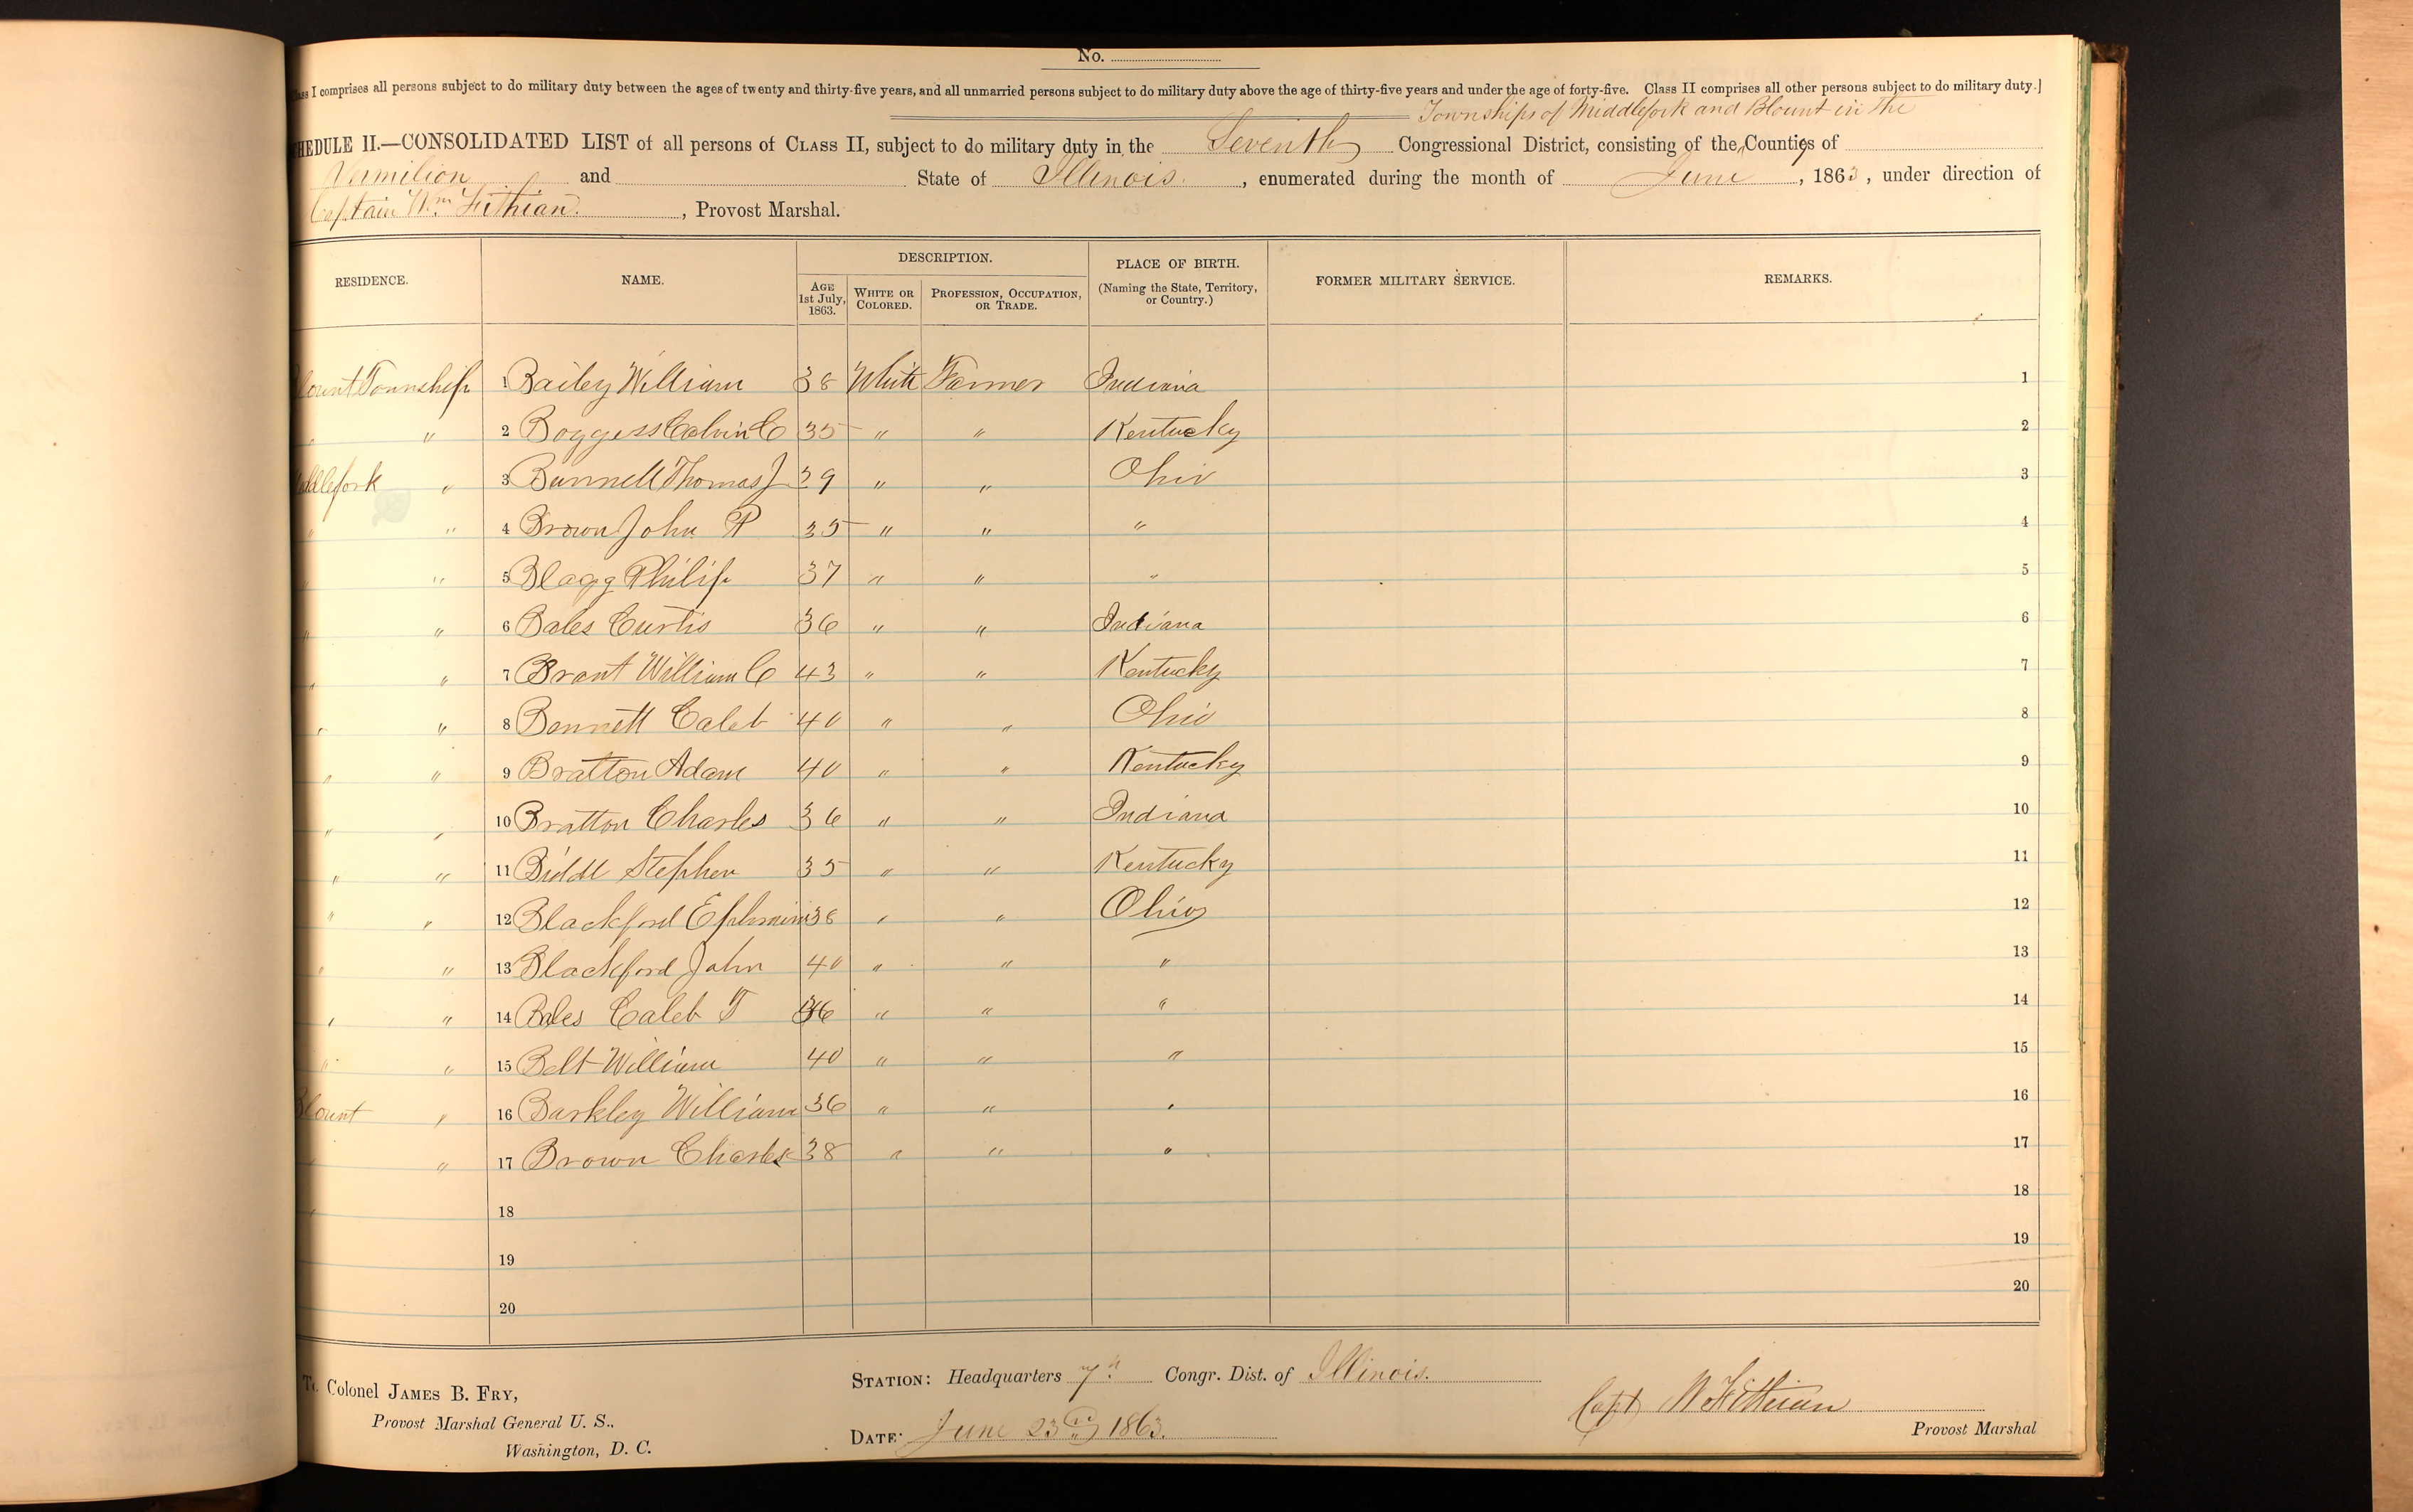 No.
ass I comprises all persons subject to do military duty between the ages of twenty and thirty-five years, and all unmarried persons subject to do military duty above the age of thirty-five years and under the age of forty-five. Class II comprises all other persons subject to do military duty.]
Townships of Middlefork and Blount in the
HEDULE II.—CONSOLIDATED LIST of all persons of CLASS II, subject to do military duty in the Seventh Congressional District, consisting of the Counties of
Vermilion and State of Illinois, enumerated during the month of June, 1863, under direction of
Captain Wm Fithian, Provost Marshal.
RESIDENCE. NAME. DESCRIPTION. PLACE OF BIRTH. (Naming the State, Territory, or Country.) FORMER MILITARY SERVICE. REMARKS.
AGE 1st July, 1863. WHITE OR COLORED. PROFESSION, OCCUPATION, OR TRADE.
lount Township 1 Bailey William 38 White Farmer Indiana 1
" " 2 Boggess Calvin C 35 " " Kentucky 2
ddlefork " 3 Bunnell Thomas J 39 " " Ohio 3
" " 4 Brown John P 35 " " " 4
" " 5 Blagg Philip 37 " " " 5
" " 6 Bales Curtis 36 " " Indiana 6
" " 7 Brant William C 43 " " Kentucky 7
" " 8 Bennett Caleb 40 " " Ohio 8
" " 9 Bratton Adam 40 " " Kentucky 9
" " 10 Bratton Charles 36 " " Indiana 10
" " 11 Biddle Stephen 35 " " Kentucky 11
" " 12 Blackford Ephraim 38 " " Ohio 12
" " 13 Blackford John 40 " " " 13
" " 14 Bales Caleb T 36 " " " 14
" " 15 Belt William 40 " " " 15
Blount " 16 Barkley William 36 " " " 16
" " 17 Brown Charles 38 " " " 17
18 18
19 19
20 20
To Colonel JAMES B. FRY,
Provost Marshal General U. S.,
Washington, D. C.
STATION: Headquarters 7th Congr. Dist. of Illinois.
DATE: June 23rd 1863.
Capt Wm Fithian
Provost Marshal